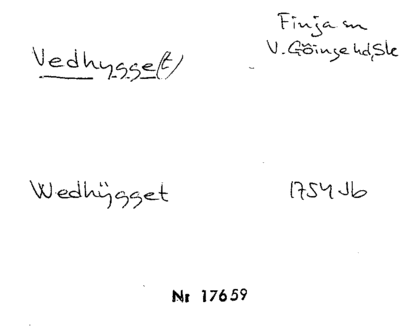 Vedhygge(t)
Finja sn
V. Göinge hd, Sk
Wedhÿgget
1754 Jb
Nr 17659